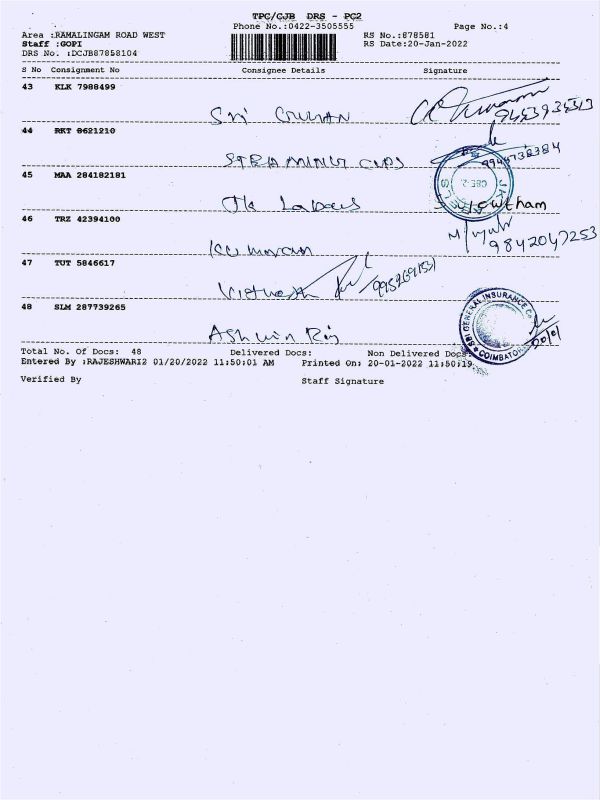 TPC/CJB DRS - PC2
Phone No.:0422-3505555 Page No.:4
Area :RAMALINGAM ROAD WEST RS No.:878581
Staff :GOPI RS Date:20-Jan-2022
DRS No. :DCJB87858104
S No Consignment No Consignee Details Signature
43 KLK 7988499
Sri
44 RKT 8621210
CUPS 9944738384
45 MAA 284182181
Jk Labels Gowtham
46 TRZ 42394100
Kumaran 9842047253
47 TUT 5846617
48 SLM 287739265
SBI GENERAL INSURANCE Co
COIMBATORE
Ashwin Raj 20/01
Total No. Of Docs: 48 Delivered Docs: Non Delivered Docs:
Entered By :RAJESHWARI2 01/20/2022 11:50:01 AM Printed On: 20-01-2022 11:50:19
Verified By Staff Signature